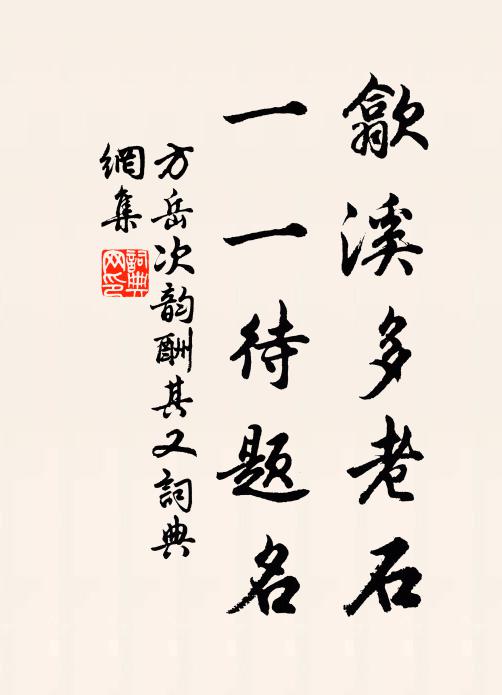 歙溪多老石
一一待題名
方岳次韵酬其又詞典
網集
詞典
网印